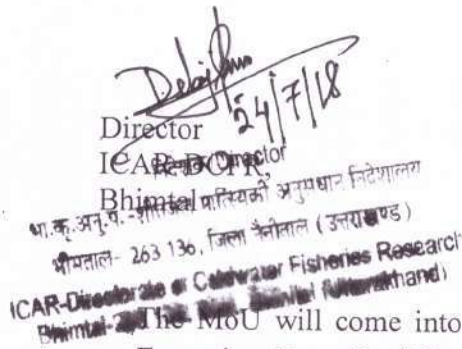 24/7/18
Director
ICAR-DCFR,
Director
Bhimtal
भा.कृ.अनु.प.-शीतजल मात्स्यिकी अनुसंधान निदेशालय
भीमताल- 263 136, जिला नैनीताल (उत्तराखण्ड)
ICAR-Directorate of Coldwater Fisheries Research
Bhimtal- (Uttarakhand)
The MoU will come into